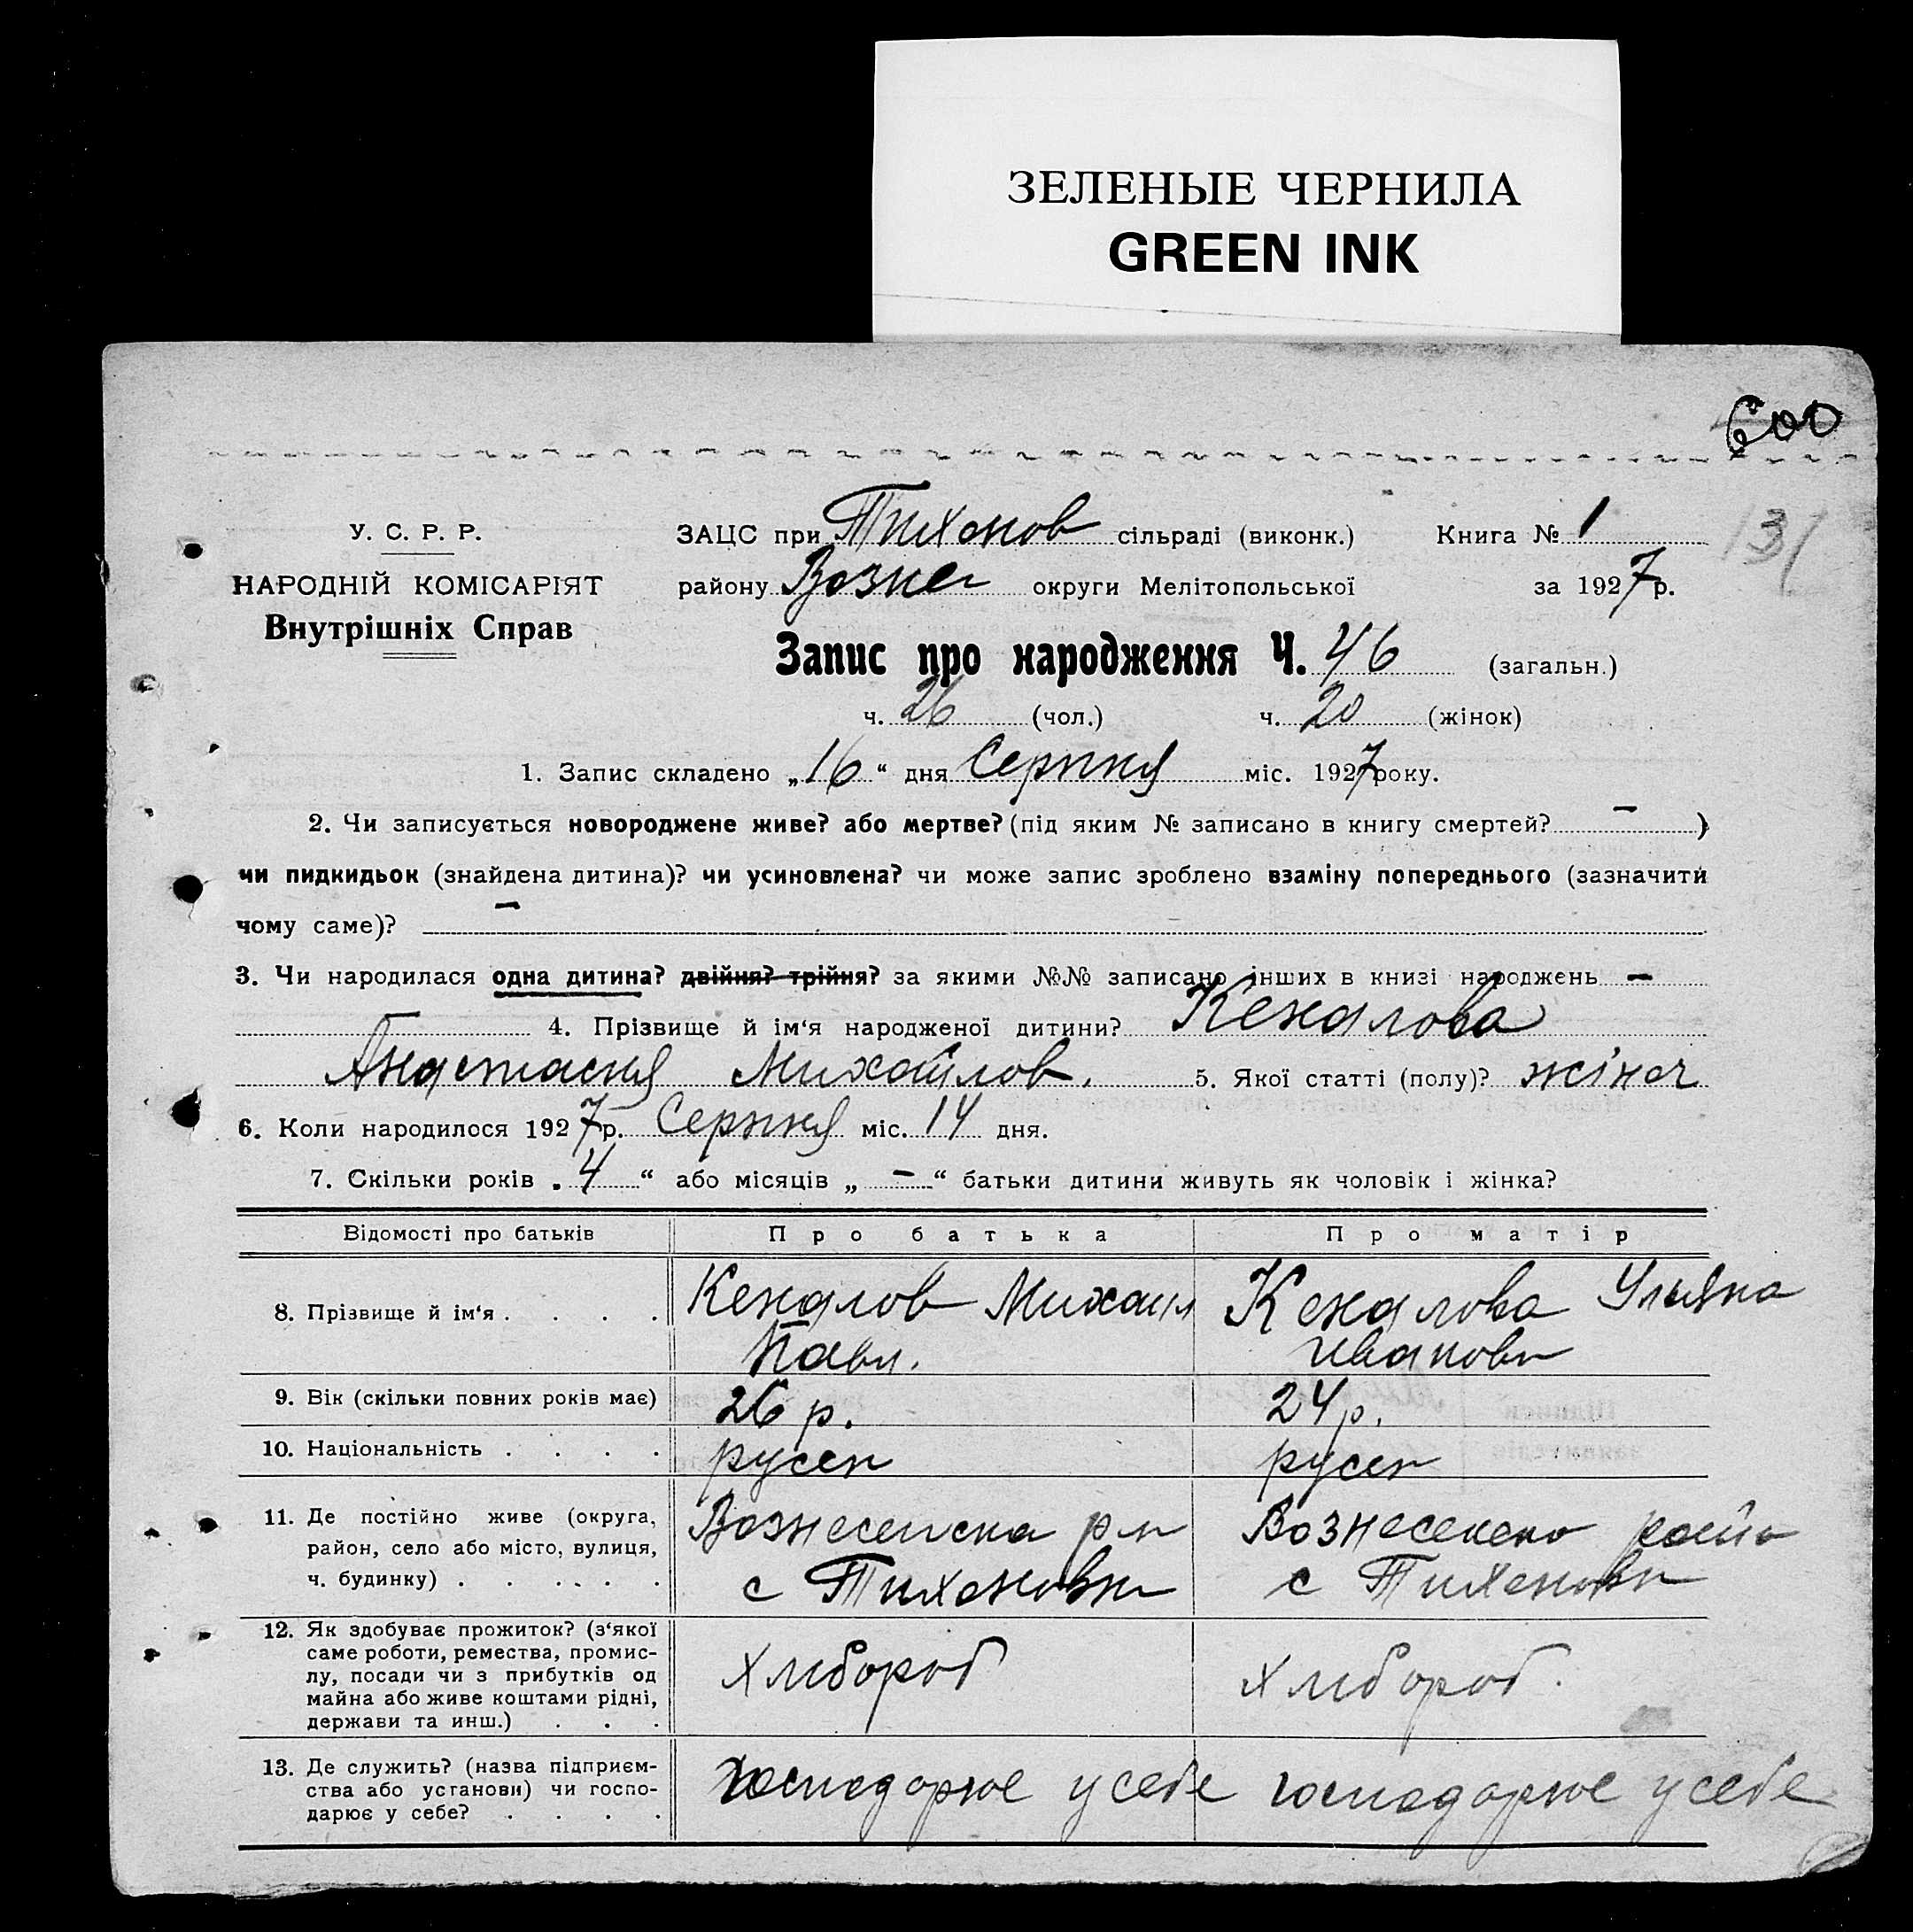 ЗЕЛЕНЫЕ ЧЕРНИЛА
GREEN INK
600
У. С. Р. Р.
НАРОДНІЙ КОМІСАРІЯТ
Внутрішніх Справ
ЗАЦС при Тихонов сільраді (виконк.) Книга № 1
131
району Возне округи Мелітопольської за 1927 р.
Запис про народження Ч. 46 (загальн.)
ч. 26 (чол.) ч. 20 (жінок)
1. Запис складено „16“ дня Серпня міс. 1927 року.
2. Чи записується новороджене живе? або мертве? (під яким № записано в книгу смертей? — )
чи пидкидьок (знайдена дитина)? чи усиновлена? чи може запис зроблено взаміну попереднього (зазначити
чому саме)? —
3. Чи народилася одна дитина? двійня? трійня? за якими №№ записано інших в книзі народжень —
4. Прізвище й ім‘я народженої дитини? Кехалова
Анастасия Михайлов. 5. Якої статті (полу)? жіноч
6. Коли народилося 1927 р. Серпня міс. 14 дня.
7. Скільки років „4“ або місяців „—“ батьки дитини живуть як чоловік і жінка?
Відомості про батьків Про батька Про матір
8. Прізвище й ім‘я . . . . Кехалов Михаил Кехалова Ульяна
Павл. Ивановн
9. Вік (скільки повних років має) 26 р. 24 р.
10. Національність . . . . русск русск
11. Де постійно живе (округа,
район, село або місто, вулиця,
ч. будинку) . . . . . .
Вознесенска р-н Вознесенско райо
с Тихоновк с Тихоновк
12. Як здобуває прожиток? (з‘якої
саме роботи, ремества, промис-
лу, посади чи з прибутків од
майна або живе коштами рідні,
держави та инш.) . . .
хлибороб хлибороб.
13. Де служить? (назва підприєм-
ства або установи) чи госпо-
дарює у себе? . . . .
господарює у себе господарює у себе